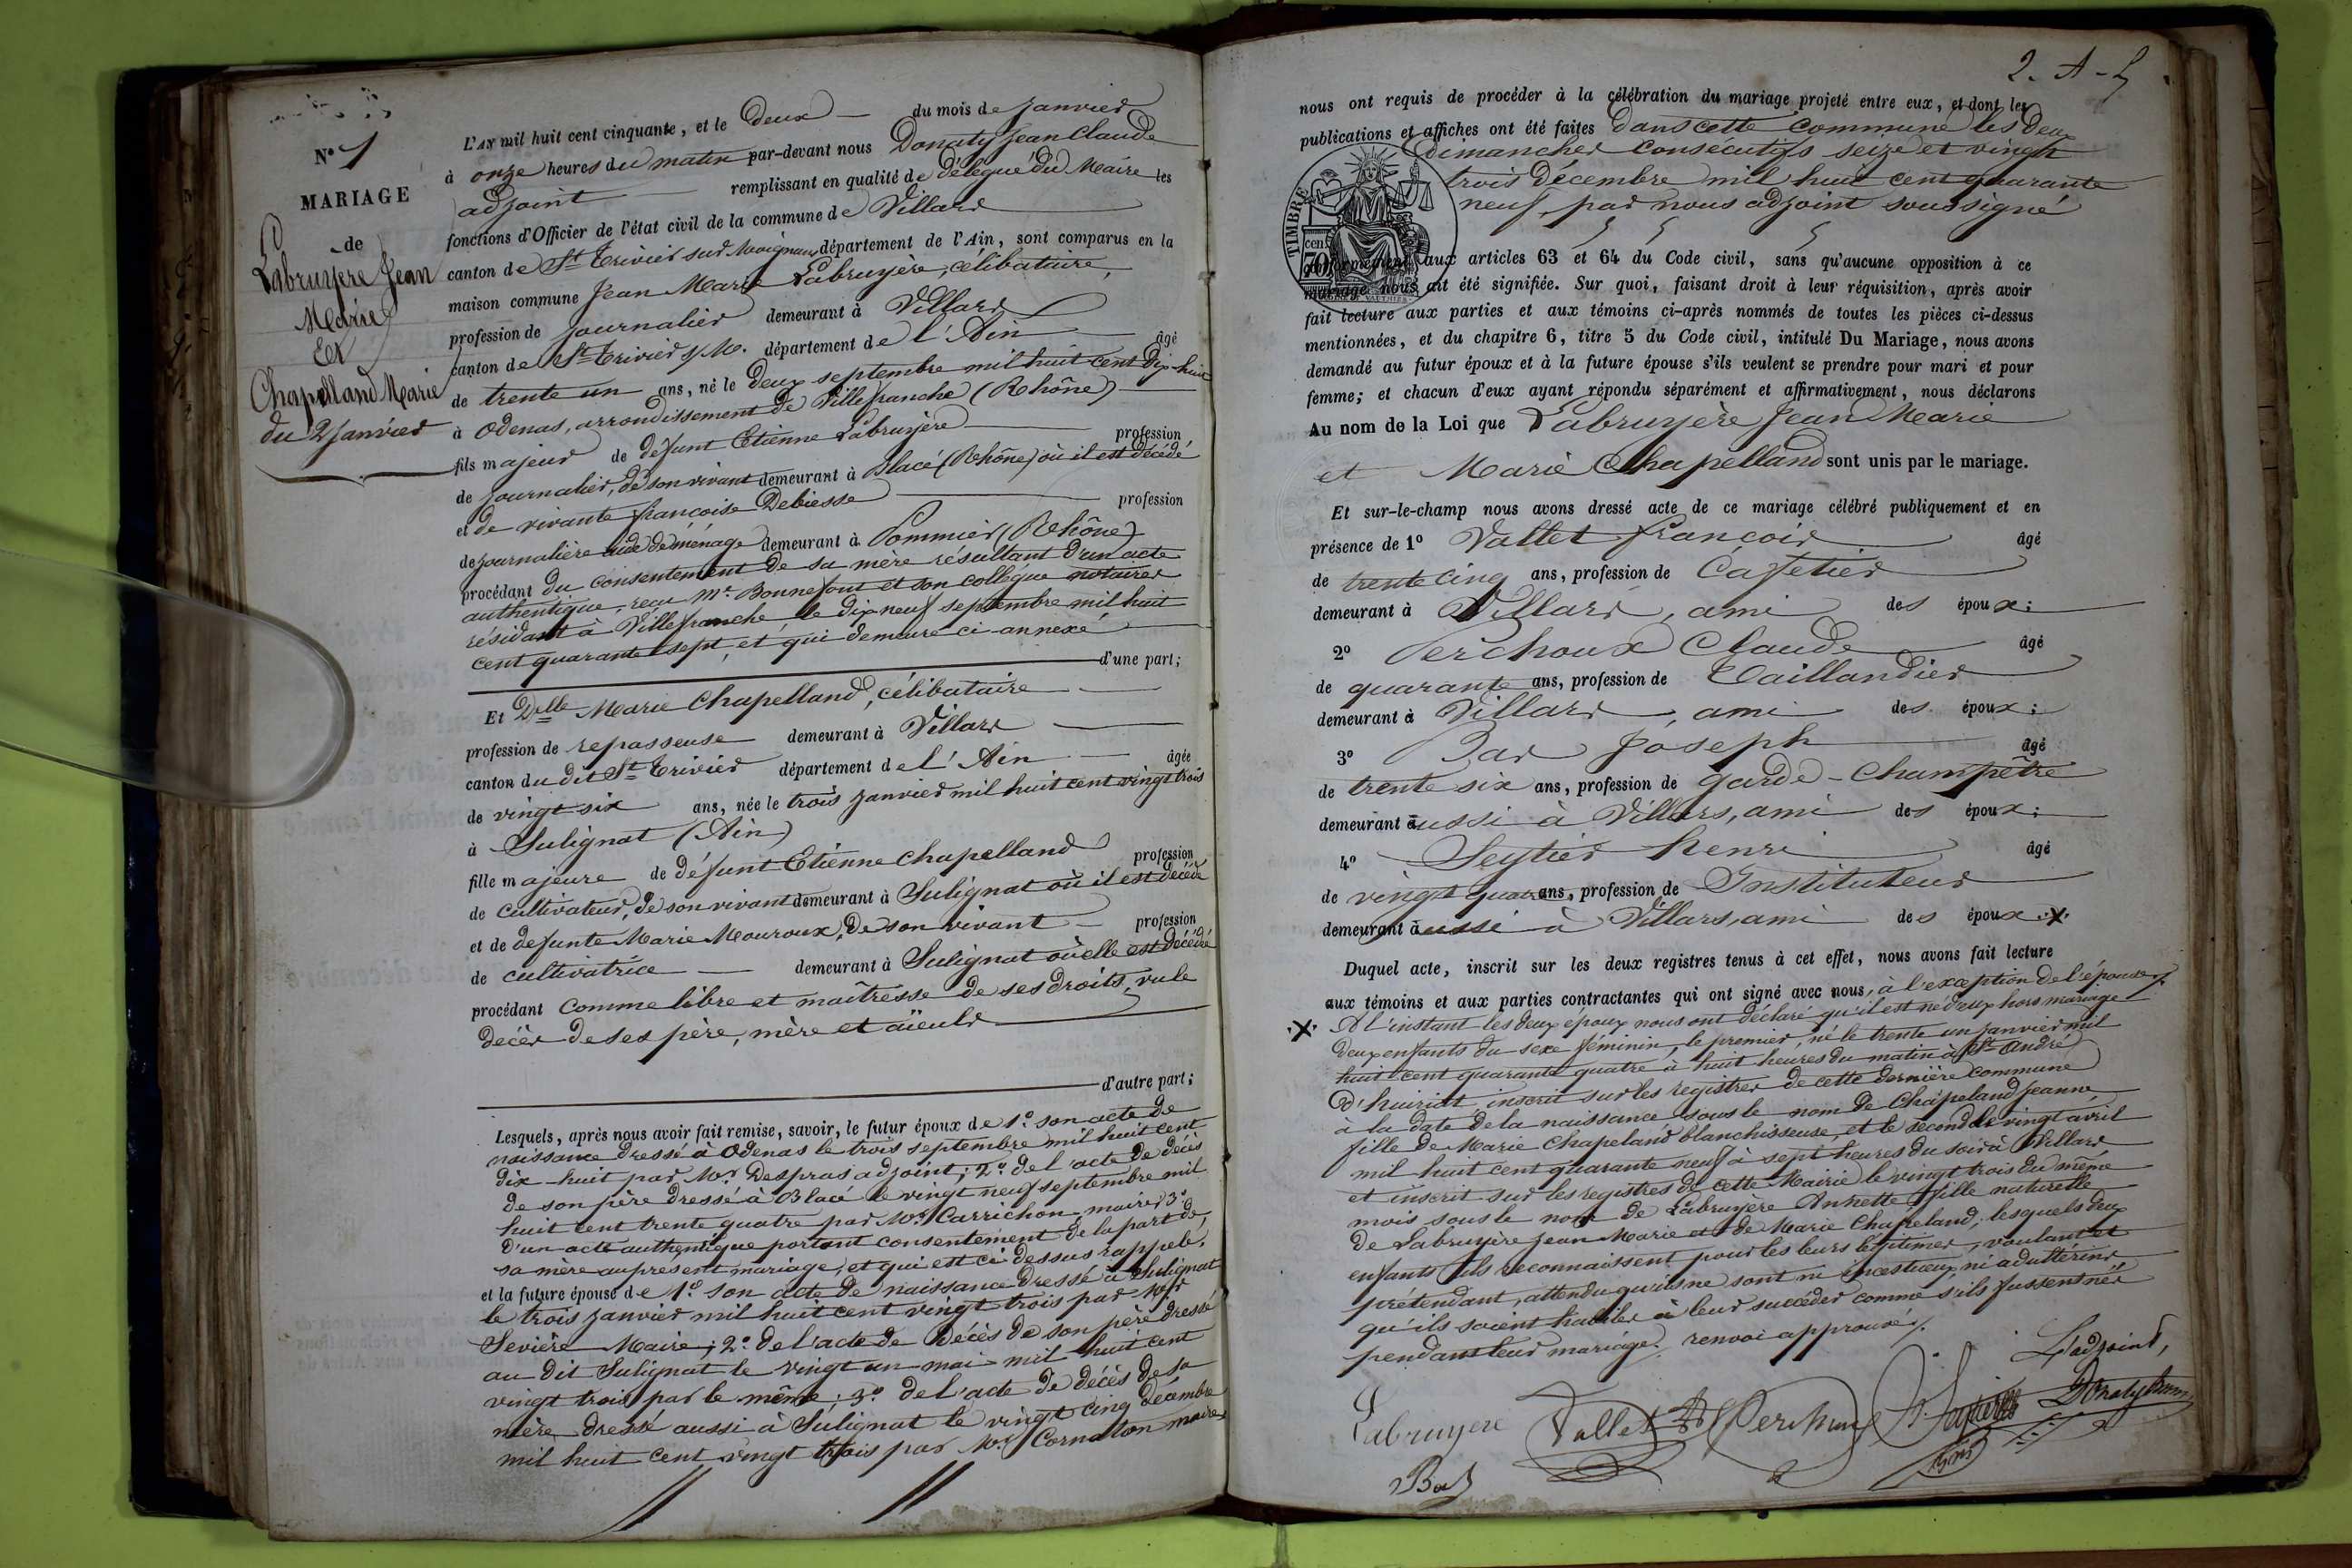 N° 1
MARIAGE
de
Labruyère Jean
Marie
Et
Chapelland Marie
du 2 Janvier
L'AN mil huit cent cinquante, et le Deux du mois de Janvier
à onze heures du matin par-devant nous Donaty Jean Claude
adjoint remplissant en qualité de Délégué du Maire les
fonctions d'Officier de l'état civil de la commune de Villars
canton de St Trivier sur Moignans département de l'Ain, sont comparus en la
maison commune Jean Marie Labruyère, célibataire,
profession de journalier demeurant à Villars
canton de St Trivier s/M. département de l'Ain âgé
de trente un ans, né le Deux septembre mil huit cent Dix-huit
à Odenas, arrondissement de Villefranche (Rhône)
fils majeur de défunt Etienne Labruyère profession
de journalier, de son vivant demeurant à Blacé (Rhône) où il est décédé
et de vivante françoise Debiesse profession
de journalière aide de ménage demeurant à Pommier (Rhône)
procédant du consentement de sa mère résultant d'un acte
authentique, reçu Me Bonnefont et son collègue notaires
résidant à Villefranche le dix neuf septembre mil huit
cent quarante sept, et qui demeure ci-annexé
d'une part;
Et Delle Marie Chapelland, célibataire
profession de repasseuse demeurant à Villars
canton du dit St Trivier département de l'Ain âgée
de vingt six ans, née le trois janvier mil huit cent vingt trois
à Sulignat (Ain)
fille majeure de défunt Etienne Chapelland profession
de cultivateur, de son vivant demeurant à Sulignat où il est décédé
et de defunte Marie Mouroux, de son vivant profession
de cultivatrice demeurant à Sulignat où elle est décédée
procédant comme libre et maîtresse de ses droits, vu le
décès de ses père, mère et aïeuls
d'autre part;
Lesquels, après nous avoir fait remise, savoir, le futur époux de 1° son acte de
naissance dressé à Odenas le trois septembre mil huit cent
dix-huit par Mr Despras adjoint; 2° de l'acte de décès
de son père dressé à Blacé le vingt neuf septembre mil
huit cent trente quatre par Mr Carrichon, maire; 3°
d'un acte authentique portant consentement de la part de
sa mère au présent mariage, et qui est ci dessus rappelé,
et la future épouse de 1° son acte de naissance dressé à Sulignat
le trois janvier mil huit cent vingt trois par Mr
Sevière Maire; 2° de l'acte de décès de son père dressé
au dit Sulignat le vingt un mai mil huit cent
vingt trois par le même; 3° de l'acte de décès de sa
mère dressé aussi à Sulignat le vingt cinq décembre
mil huit cent vingt trois par Mr Cornaton maire
2. A - L
nous ont requis de procéder à la célébration du mariage projeté entre eux, et dont les
publications et affiches ont été faites Dans cette commune les deux
dimanches consécutifs seize et vingt
trois décembre mil huit cent quarante
neuf, par nous adjoint soussigné
TIMBRE
70
cen.
conformément aux articles 63 et 64 du Code civil, sans qu'aucune opposition à ce
mariage nous ait été signifiée. Sur quoi, faisant droit à leur réquisition, après avoir
fait lecture aux parties et aux témoins ci-après nommés de toutes les pièces ci-dessus
mentionnées, et du chapitre 6, titre 5 du Code civil, intitulé Du Mariage, nous avons
demandé au futur époux et à la future épouse s'ils veulent se prendre pour mari et pour
femme; et chacun d'eux ayant répondu séparément et affirmativement, nous déclarons
Au nom de la Loi que Labruyère Jean Marie
et Marie Chapelland sont unis par le mariage.
Et sur-le-champ nous avons dressé acte de ce mariage célébré publiquement et en
présence de 1° Vallet françois âgé
de trente cinq ans, profession de Cafetier
demeurant à Villars, ami des époux;
2° Perchoux Claude âgé
de quarante ans, profession de Taillandier
demeurant à Villars, ami des époux;
3° Bar Joseph âgé
de trente six ans, profession de garde-Champêtre
demeurant aussi à Villars, ami des époux;
4° Seytier henri âgé
de vingt quatre ans, profession de Instituteur
demeurant aussi à Villars, ami des époux .X.
Duquel acte, inscrit sur les deux registres tenus à cet effet, nous avons fait lecture
aux témoins et aux parties contractantes qui ont signé avec nous, à l'exception de l'épouse
.X. A l'instant les deux époux nous ont déclaré qu'il est né d'eux hors mariage
deux enfants du sexe féminin, le premier, né le trente un janvier mil
huit cent quarante quatre à huit heures du matin à St André
d'huiriat inscrit sur les registres de cette dernière commune
à la date de la naissance sous le nom de Chapeland Jeanne,
fille de Marie Chapeland blanchisseuse, et le second le vingt avril
mil huit cent quarante neuf à sept heures du soir à Villars
et inscrit sur les registres de cette Mairie le vingt trois du même
mois sous le nom de Labruyère Annette fille naturelle
de Labruyère Jean Marie et de Marie Chapeland, lesquels deux
enfants ils reconnaissent pour les leurs légitimes, voulant et
prétendant, attendu qu'ils ne sont ni incestueux ni adultérins
qu'ils soient habiles à leur succéder comme s'ils fussent nés
pendant leur mariage. renvoi approuvé
L'adjoint,
Labruyere Vallet Perchoux Donaty
Bar